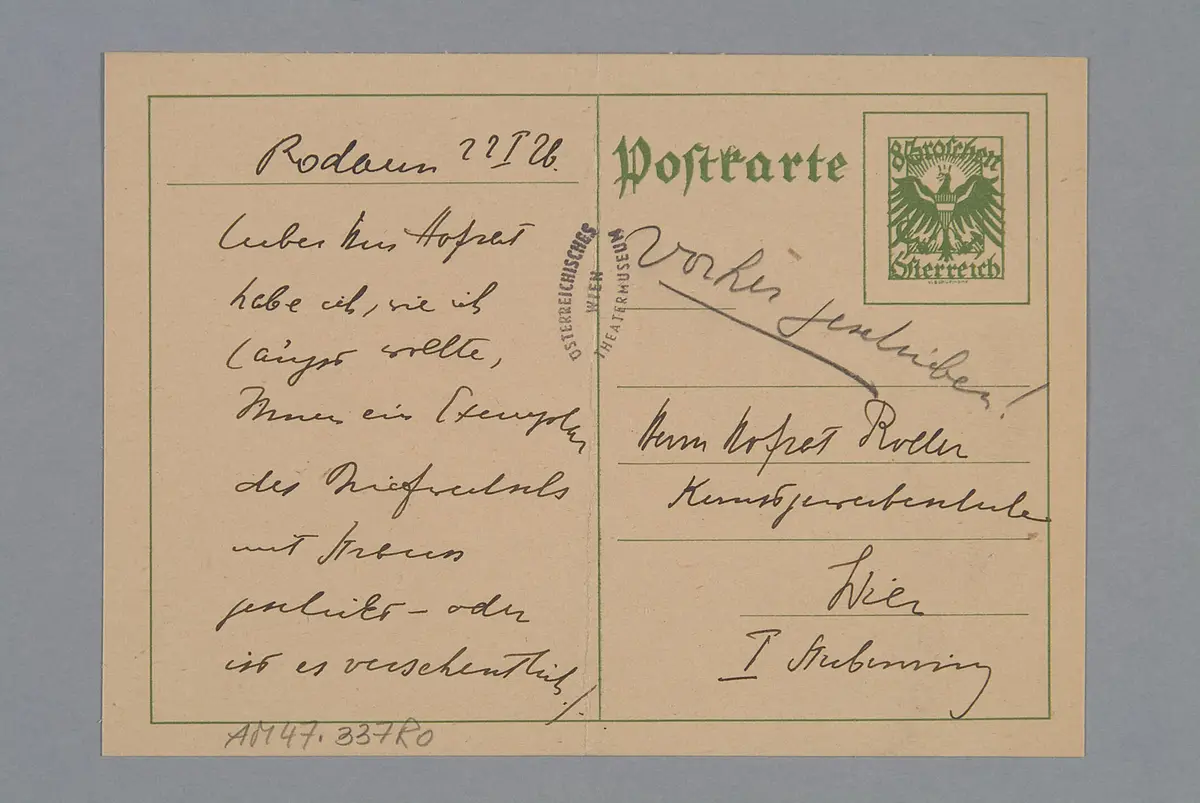 Rodaun 22 I 26.
Lieber Herr Hofrat
habe ich, wie ich
längst wollte,
Ihnen ein Exemplar
des Briefwechsels
mit Strauss
geschickt – oder
ist es versehentlich /
AM 47.337 Ro
Postkarte
8 Groschen
Österreich
ÖSTERREICHISCHES
THEATERMUSEUM
WIEN
Vorher geschrieben!
Herrn Hofrat Roller
Kunstgewerbeschule
Wien
I Stubenring